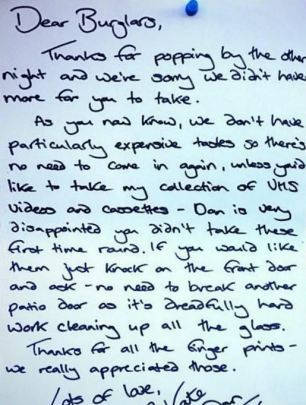 Dear Burglars,
Thanks for popping by the other
night and we're sorry we didn't have
more for you to take.
As you now know, we don't have
particularly expensive tastes so there's
no need to come in again, unless you'd
like to take my collection of VHS
videos and cassettes - Dan is very
disappointed you didn't take these
first time round. If you would like
them just knock on the front door
and ask - no need to break another
patio door as it's dreadfully hard
work cleaning up all the glass.
Thanks for all the finger prints -
we really appreciated those.
Lots of love,
Kate